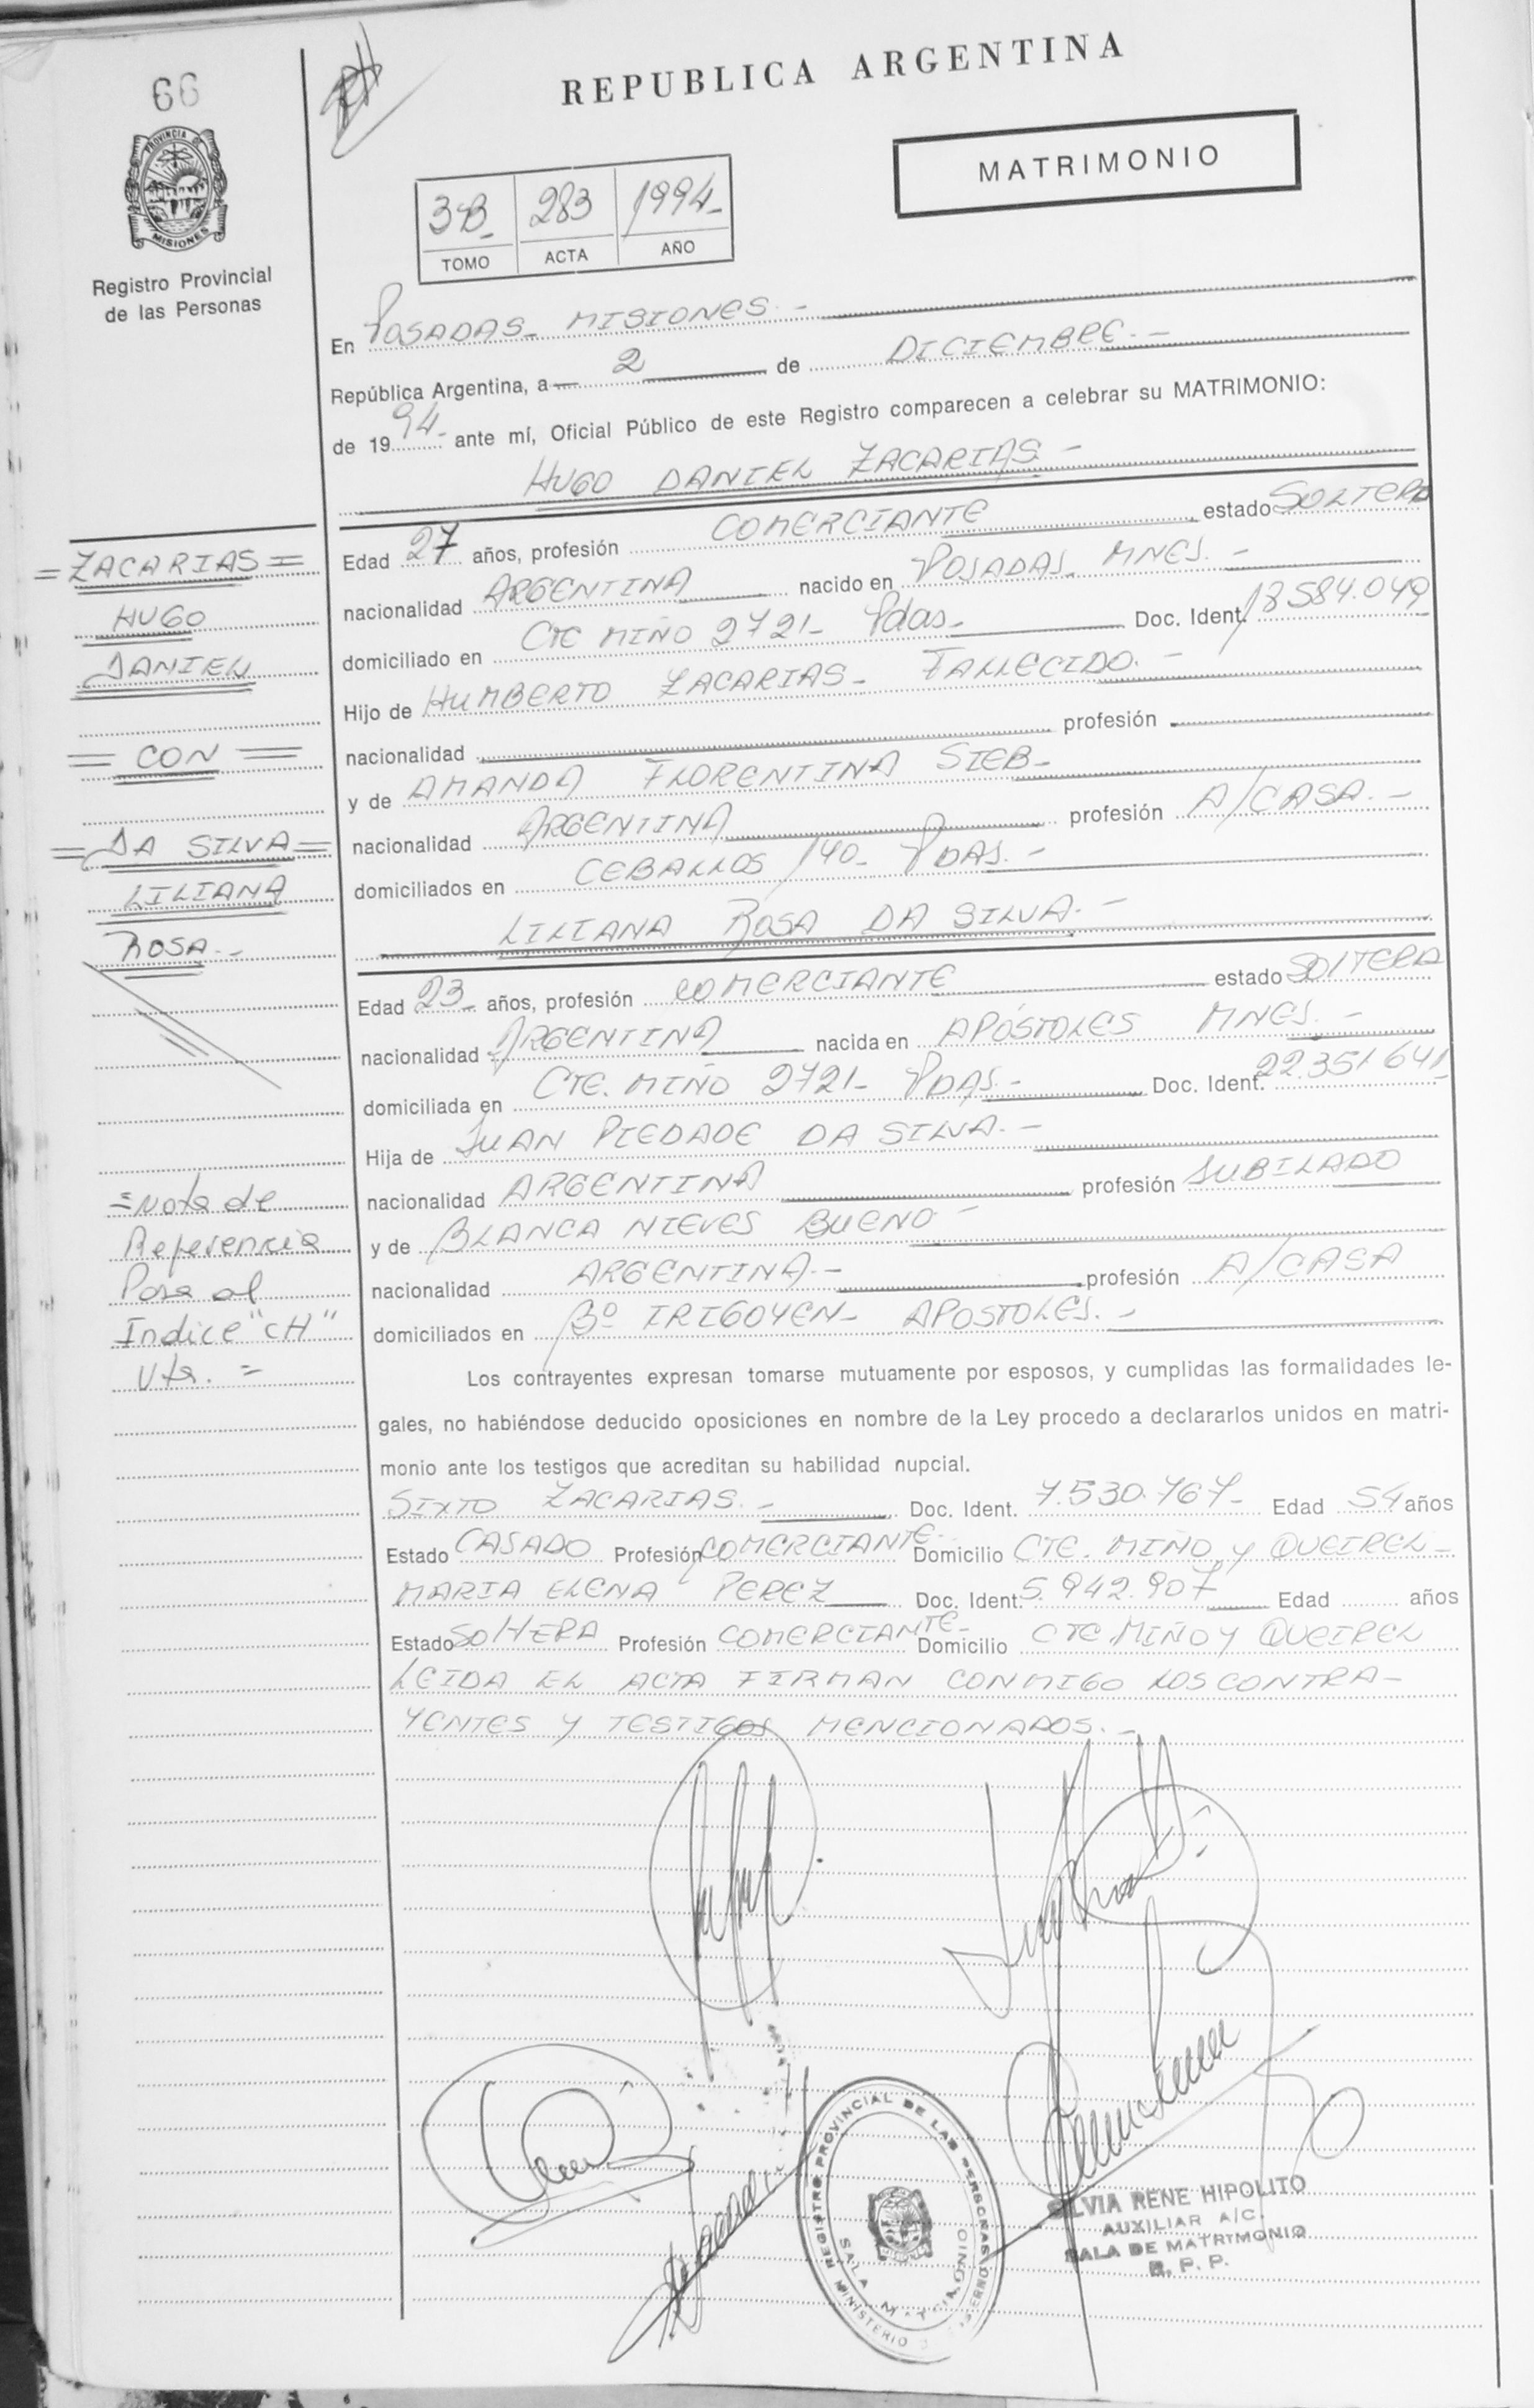 66
REPUBLICA ARGENTINA
PROVINCIA
MISIONES
Registro Provincial
de las Personas
MATRIMONIO
3B- 283 1994-
TOMO ACTA AÑO
En POSADAS- MISIONES.-
República Argentina, a 2 de DICIEMBRE.-
de 1994- ante mí, Oficial Público de este Registro comparecen a celebrar su MATRIMONIO:
HUGO DANIEL ZACARIAS.-
Edad 27 años, profesión COMERCIANTE estado SOLTERO
nacionalidad ARGENTINA nacido en POSADAS. MNES.-
domiciliado en CTE MIÑO 2721- Pdas- Doc. Ident. 18584.049
Hijo de HUMBERTO ZACARIAS- FALLECIDO.-
nacionalidad profesión
y de AMANDA FLORENTINA SIEB-
nacionalidad ARGENTINA profesión A/CASA.-
domiciliados en CEBALLOS 140- PDAS.-
LILIANA ROSA DA SILVA.-
Edad 23- años, profesión COMERCIANTE estado SOLTERA
nacionalidad ARGENTINA nacida en APÓSTOLES MNES.-
domiciliada en CTE. MIÑO 2721- PDAS.- Doc. Ident. 22.351641
Hija de JUAN PIEDADE DA SILVA.-
nacionalidad ARGENTINA profesión JUBILADO
y de BLANCA NIEVES BUENO-
nacionalidad ARGENTINA.- profesión A/CASA
domiciliados en Bº IRIGOYEN- APOSTOLES.-
Los contrayentes expresan tomarse mutuamente por esposos, y cumplidas las formalidades le-
gales, no habiéndose deducido oposiciones en nombre de la Ley procedo a declararlos unidos en matri-
monio ante los testigos que acreditan su habilidad nupcial.
SIXTO ZACARIAS.- Doc. Ident. 7.530.767- Edad 54 años
Estado CASADO Profesión COMERCIANTE- Domicilio CTE. MIÑO y QUEIREL-
MARIA ELENA PEREZ Doc. Ident. 5.942.907 Edad años
Estado SOLTERA Profesión COMERCIANTE- Domicilio CTE MIÑO y QUEIREL
LEIDA EL ACTA FIRMAN CONMIGO LOS CONTRA-
YENTES Y TESTIGOS MENCIONADOS.-
=ZACARIAS=
HUGO
DANIEL
=CON=
=DA SILVA=
LILIANA
ROSA.-
=Nota de
Referencia
Pasa al
Indice "CH"
Vta.=
REGISTRO PROVINCIAL DE LAS PERSONAS
MINISTERIO
SALA
SILVIA RENE HIPOLITO
AUXILIAR A/C.
SALA DE MATRIMONIO
R. P. P.